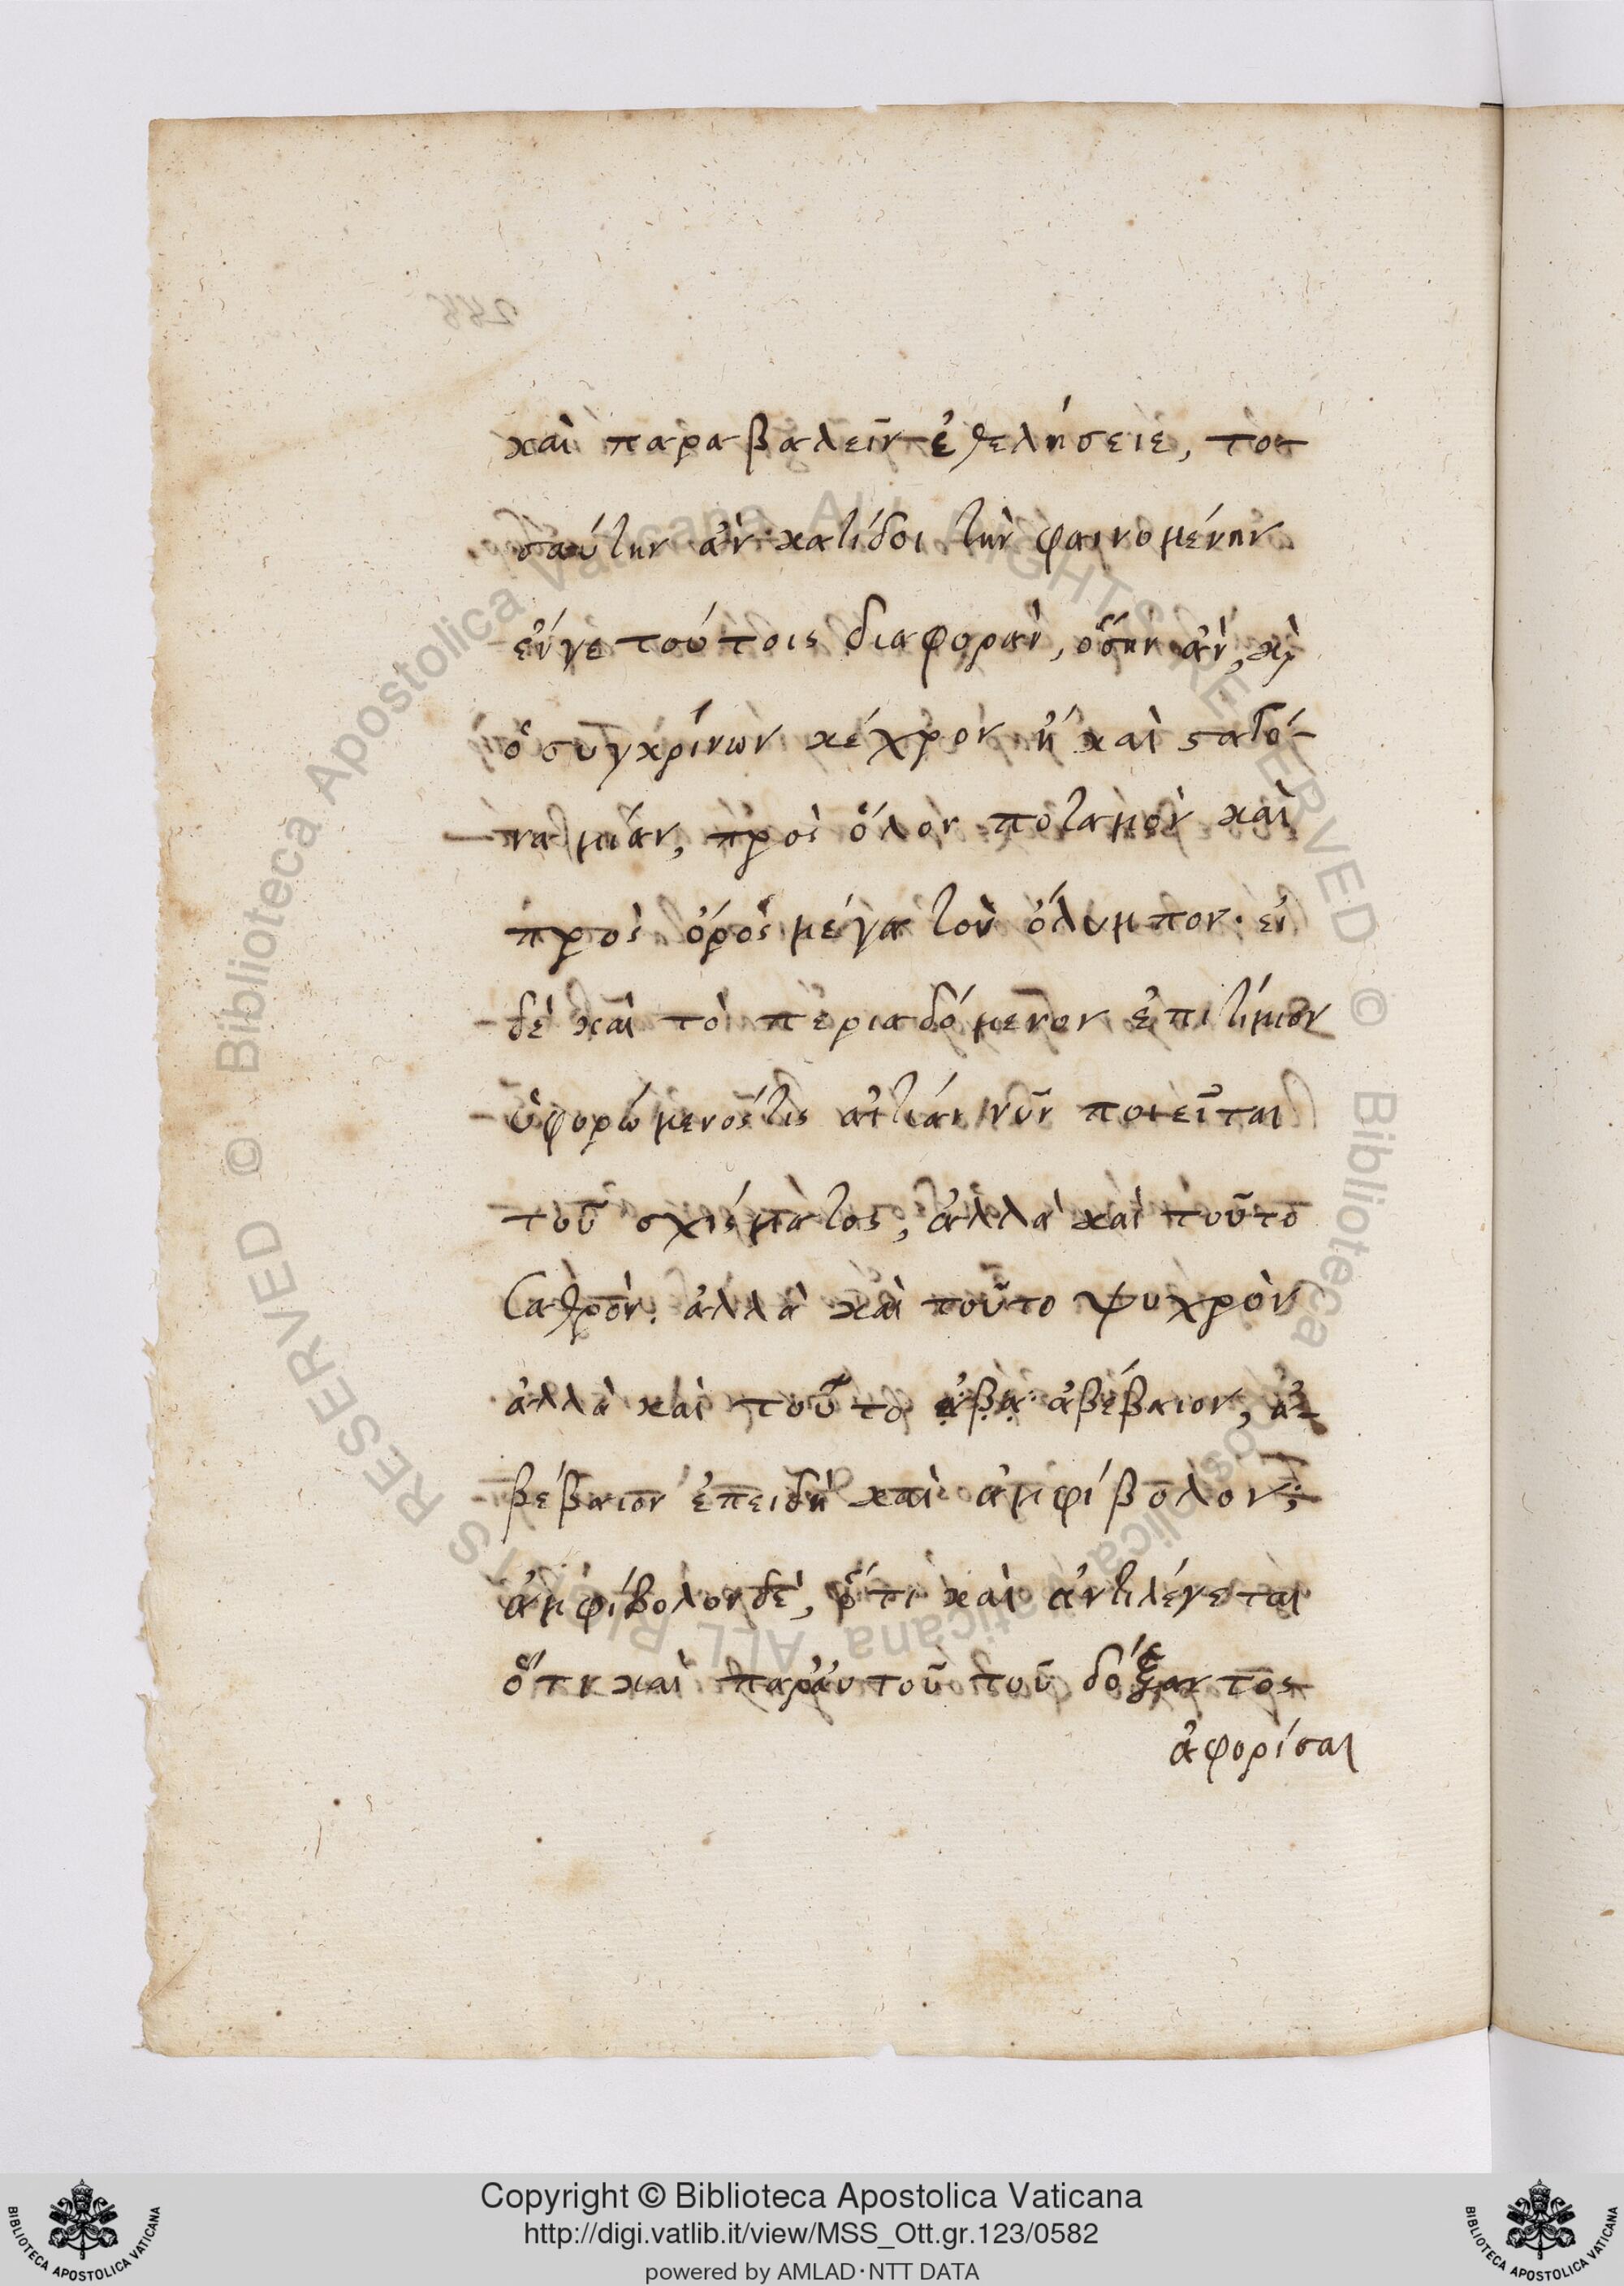 καὶ παραβαλεῖν ἐθελήσειε, το-
σαύτην ἂν κατίδοι τὴν φαινομένην
εἴγε τούτοις διαφορὰν, ὅσην ἂν, καὶ
ὁ συγκρίνων κέχρον ἢ καὶ σταγό-
να μίαν, πρὸς ὅλον ποταμὸν καὶ
πρὸς ὄρος μέγα τὸν ὄλυμπον· εἰ
δὲ καὶ τὸ περιαδόμενον ἐπιτίμιον
ὑφορώμενός τις αἰτίαν νῦν ποιεῖται
τοῦ σχίσματος, ἀλλὰ καὶ τοῦτο
σαθρὸν. ἀλλὰ καὶ τοῦτο ψυχρὸν
ἀλλὰ καὶ τοῦτο ἀβα ἀβέβαιον, ἀ-
βέβαιον ἐπειδὴ καὶ ἀμφίβολον;
ἀμφίβολον δὲ, ὅτι καὶ ἀντιλέγεται
ὅτι καὶ παρ' αὐτοῦ τοῦ δόξαντος
ἀφορίσαι
Copyright © Biblioteca Apostolica Vaticana
http://digi.vatlib.it/view/MSS_Ott.gr.123/0582
powered by AMLAD·NTT DATA
BIBLIOTECA APOSTOLICA VATICANA
BIBLIOTECA APOSTOLICA VATICANA
© Biblioteca Apostolica Vaticana ALL RIGHTS RESERVED © Biblioteca Apostolica Vaticana ALL RIGHTS RESERVED